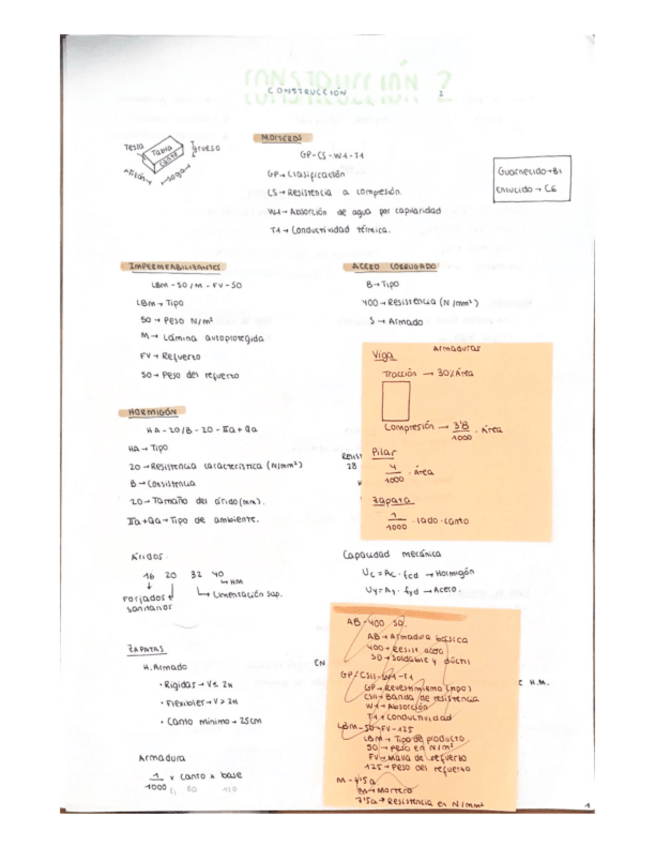 CONSTRUCCIÓN 2
CONSTRUCCIÓN 2
Testa
Tabla
Canto
grueso
Tizón
soga
MORTEROS
GP-CS-W1-T1
GP→Clasificación
CS→Resistencia a compresión.
W1→Absorción de agua por capilaridad
T1→Conductividad térmica.
Guarnecido→B1
Enlucido→C6
IMPERMEABILIZANTES
LBM-50/M-FV-50
LBM→Tipo
50→Peso N/m²
M→Lámina autoprotegida
FV→Refuerzo
50→Peso del refuerzo
ACERO CORRUGADO
B→Tipo
400→Resistencia (N/mm²)
S→Armado
Armaduras
Viga
Tracción → 30% Área
Compresión → 3'8/1000 · Área
Pilar
4/1000 · Área
Zapata
1/1000 · lado · canto
HORMIGÓN
HA-20/B-20-IIa+Qa
HA→Tipo
20→Resistencia característica (N/mm²)
B→Consistencia
20→Tamaño del árido (mm).
IIa+Qa→Tipo de ambiente.
28
Áridos.
16 20 32 40
HM
Forjados
sanitarios
Cimentación sup.
Capacidad mecánica
Uc=Ac·fcd→Hormigón
Uy=Ay·fyd→Acero.
ZAPATAS
H. Armado
· Rígidas→V≤2H
· Flexibles→V>2H
· Canto mínimo→25cm
Armadura
1/1000 x canto x base
EN
AB-400 SD.
AB→Armadura básica
400→Resist. acero
SD→Soldable y dúctil
GP/CSII-W1-T1
GP→Revestimiento (tipo)
CSII→Banda de resistencia
W1→Absorción
T1→Conductividad
LBM-50-FV-125
LBM→Tipo de producto
50→peso en N/m²
FV→Malla de refuerzo
125→Peso del refuerzo
M-7'5a
M→Mortero
7'5a→Resistencia en N/mm²
H.M.
1